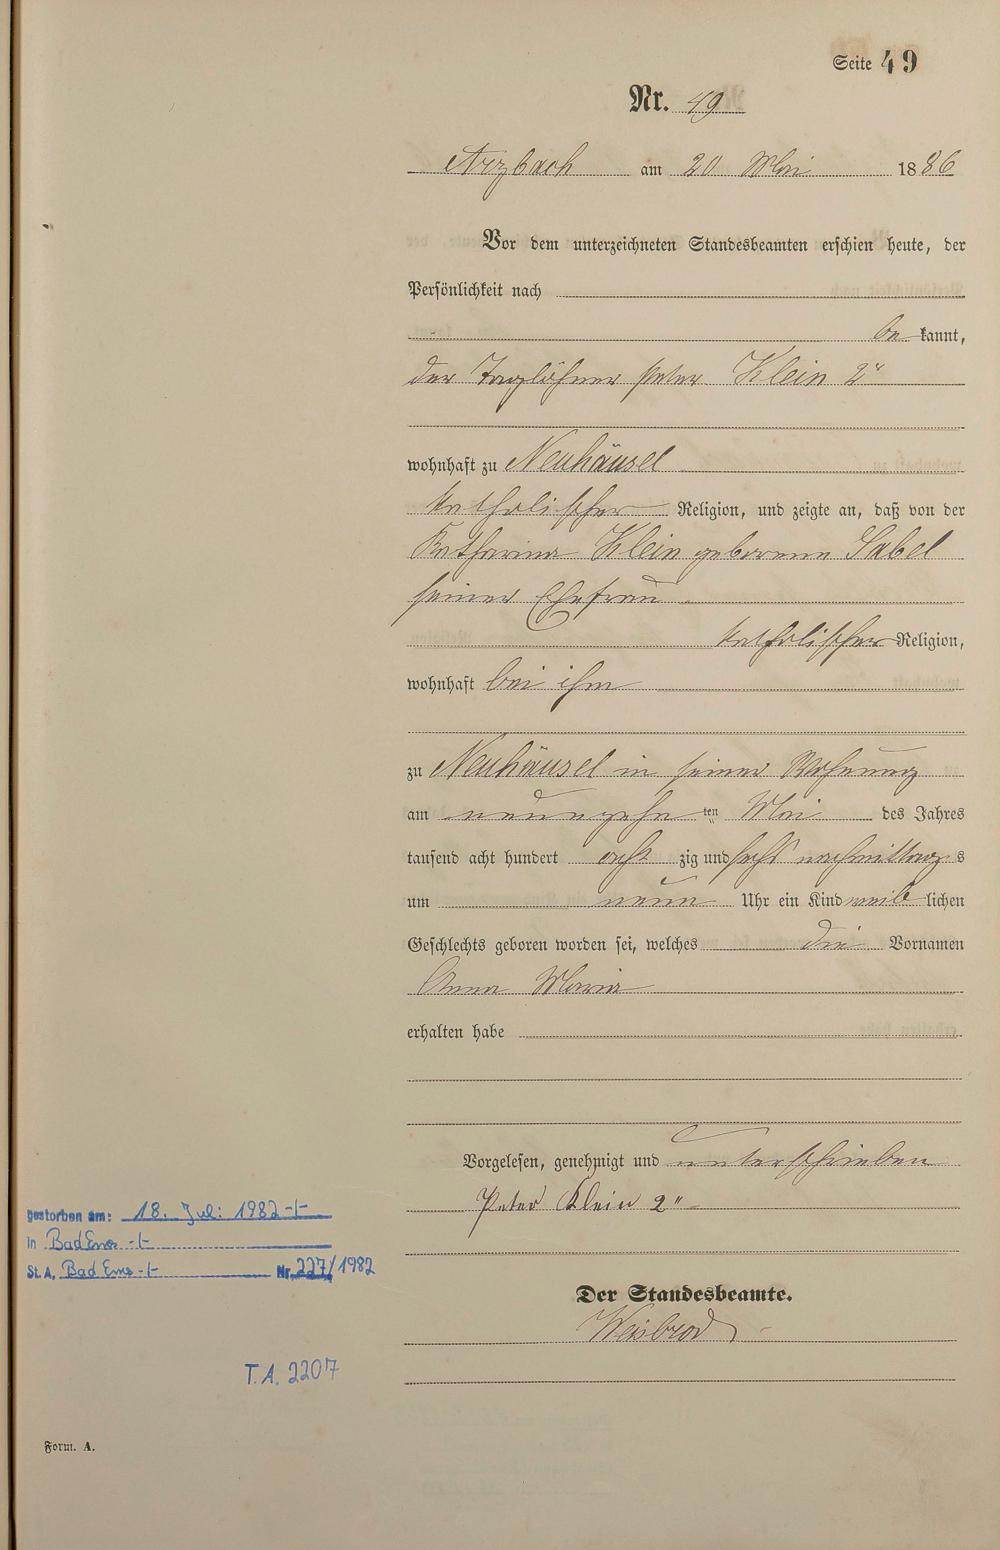 Seite 49
Nr. 49
Arzbach am 20 Mai 1886
Vor dem unterzeichneten Standesbeamten erschien heute, der
Persönlichkeit nach
be kannt,
der Taglöhner Peter Klein 2r
wohnhaft zu Neuhäusel
katholischer Religion, und zeigte an, daß von der
Katharina Klein geborene Sabel
seiner Ehefrau
katholischer Religion,
wohnhaft bei ihm
zu Neuhäusel in seiner Wohnung
am neunzehn ten Mai des Jahres
tausend acht hundert acht zig und sechs nachmittag s
um neun Uhr ein Kind weib lichen
Geschlechts geboren worden sei, welches die Vornamen
Anna Maria
erhalten habe
Vorgelesen, genehmigt und unterschrieben
Peter Klein 2r
gestorben am: 18. Juli 1982 -/-
in Bad Ems -/-
St. A. Bad Ems -/- Nr. 227/1982
Der Standesbeamte.
Weisbrod
T.A. 2207
Form. A.